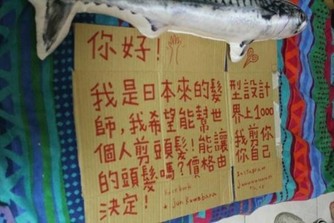 你好!
我是日本來的髮型設計
師,我希望能幫世界上1000
個人剪頭髮!能讓我剪你
的頭髮嗎?價格由你自己
決定!
Facebook
Instagram